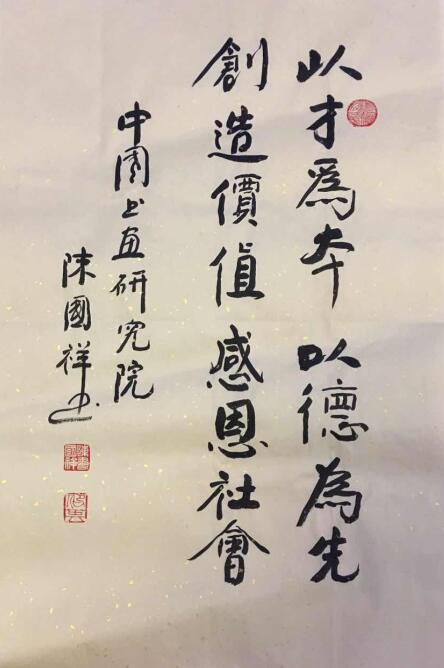 以才爲本 以德為先
創造價值 感恩社會
中國书画研究院
陳國祥书